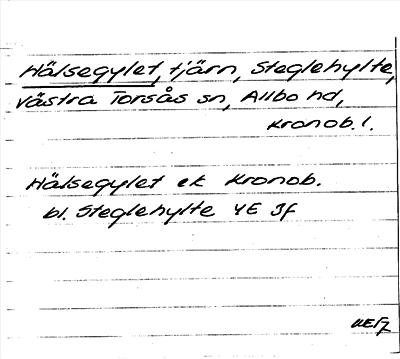 Hälsegylet, tjärn, Steglehylte,
Västra Torsås sn, Allbo hd,
Kronob. l.
Hälsegylet ek Kronob.
bl. Steglehylte 4E 3f